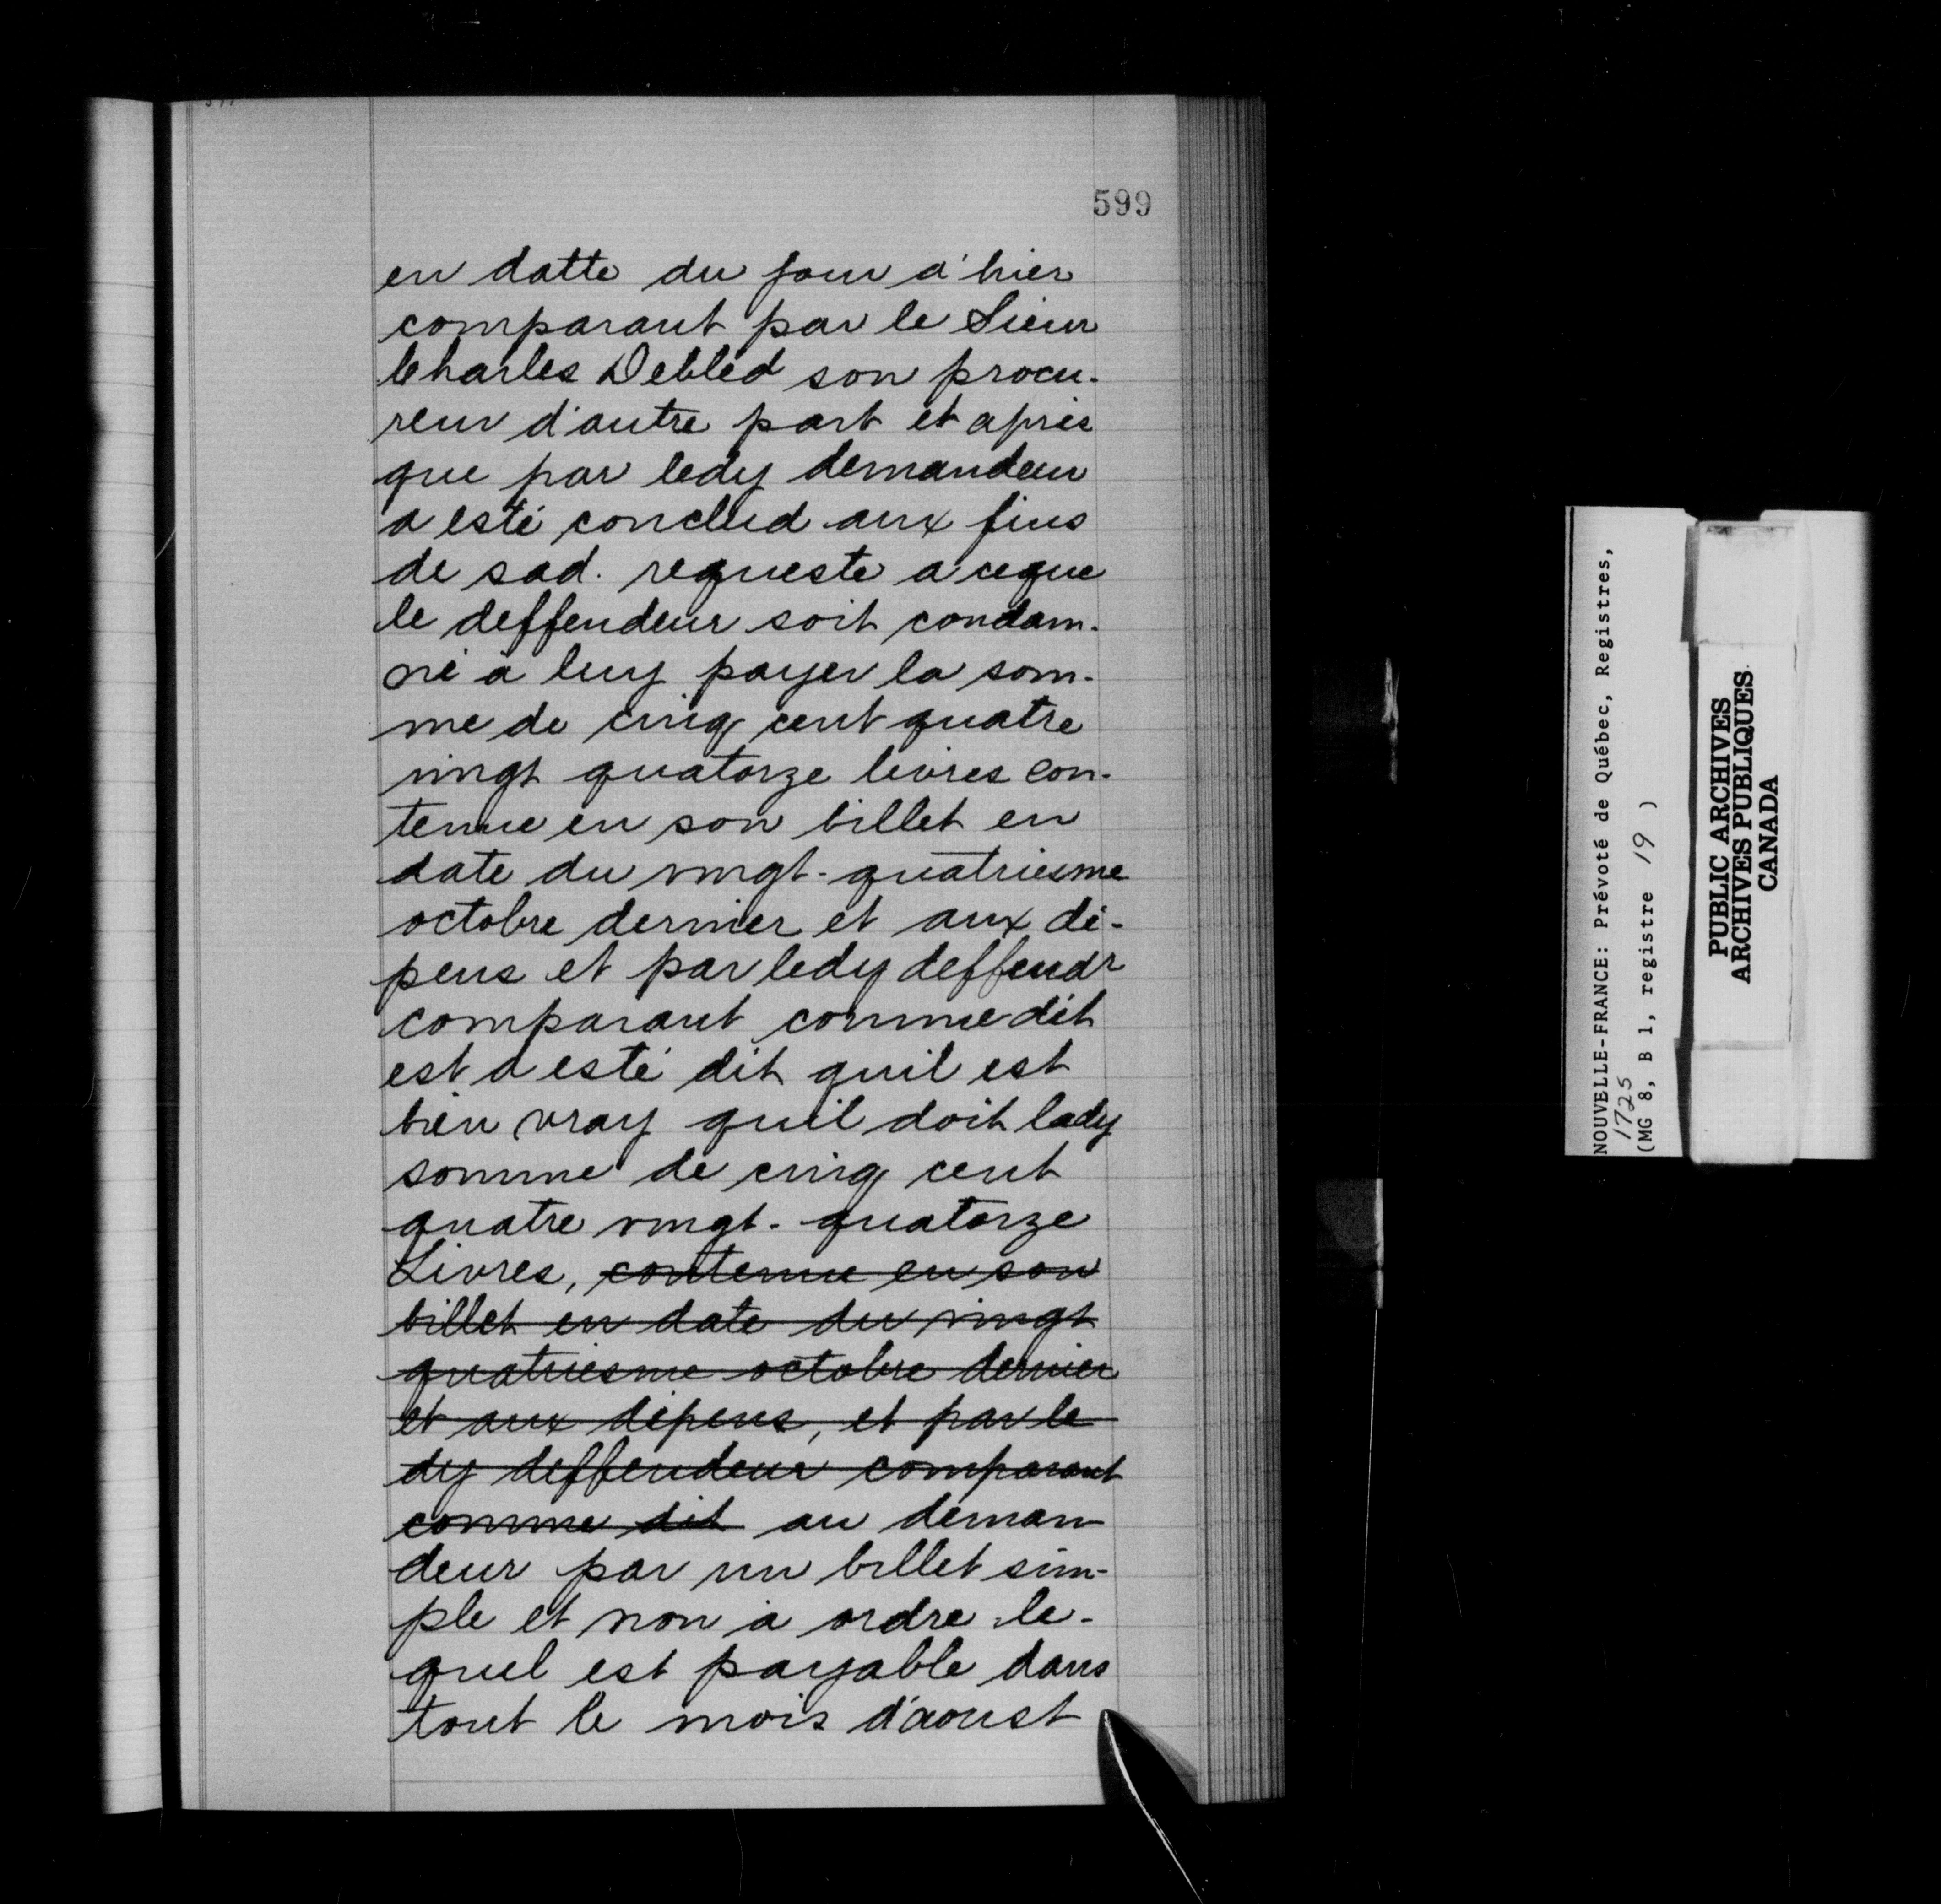 599
en datte du jour d'hier
comparant par le Sieur
Charles Debled son procu-
reur d'autre part et après
que par ledy demandeur
a esté conclud aux fins
de sad. requeste a ceque
le deffendeur soit condam-
né à luy payer la som-
me de cinq cent quatre
vingt quatorze livres con-
tenue en son billet en
date du vingt-quatriesme
octobre dernier et aux dé-
pens et par ledy deffendr
comparant comme dit
est a esté dit quil est
bien vray quil doit lady
somme de cinq cent
quatre vingt-quatorze
Livres, contenue en son
billet en date du vingt
quatriesme octobre dernier
et aux dépens, et par le
dy deffendeur comparant
comme dit au deman-
deur par un billet sim-
ple et non à ordre le-
quel est payable dans
tout le mois d'aoust
NOUVELLE-FRANCE: Prévoté de Québec, Registres,
1725
(MG 8, B 1, registre 19 )
PUBLIC ARCHIVES
ARCHIVES PUBLIQUES
CANADA